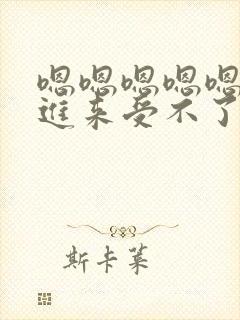 嗯嗯嗯嗯嗯
进来受不了
斯卡莱